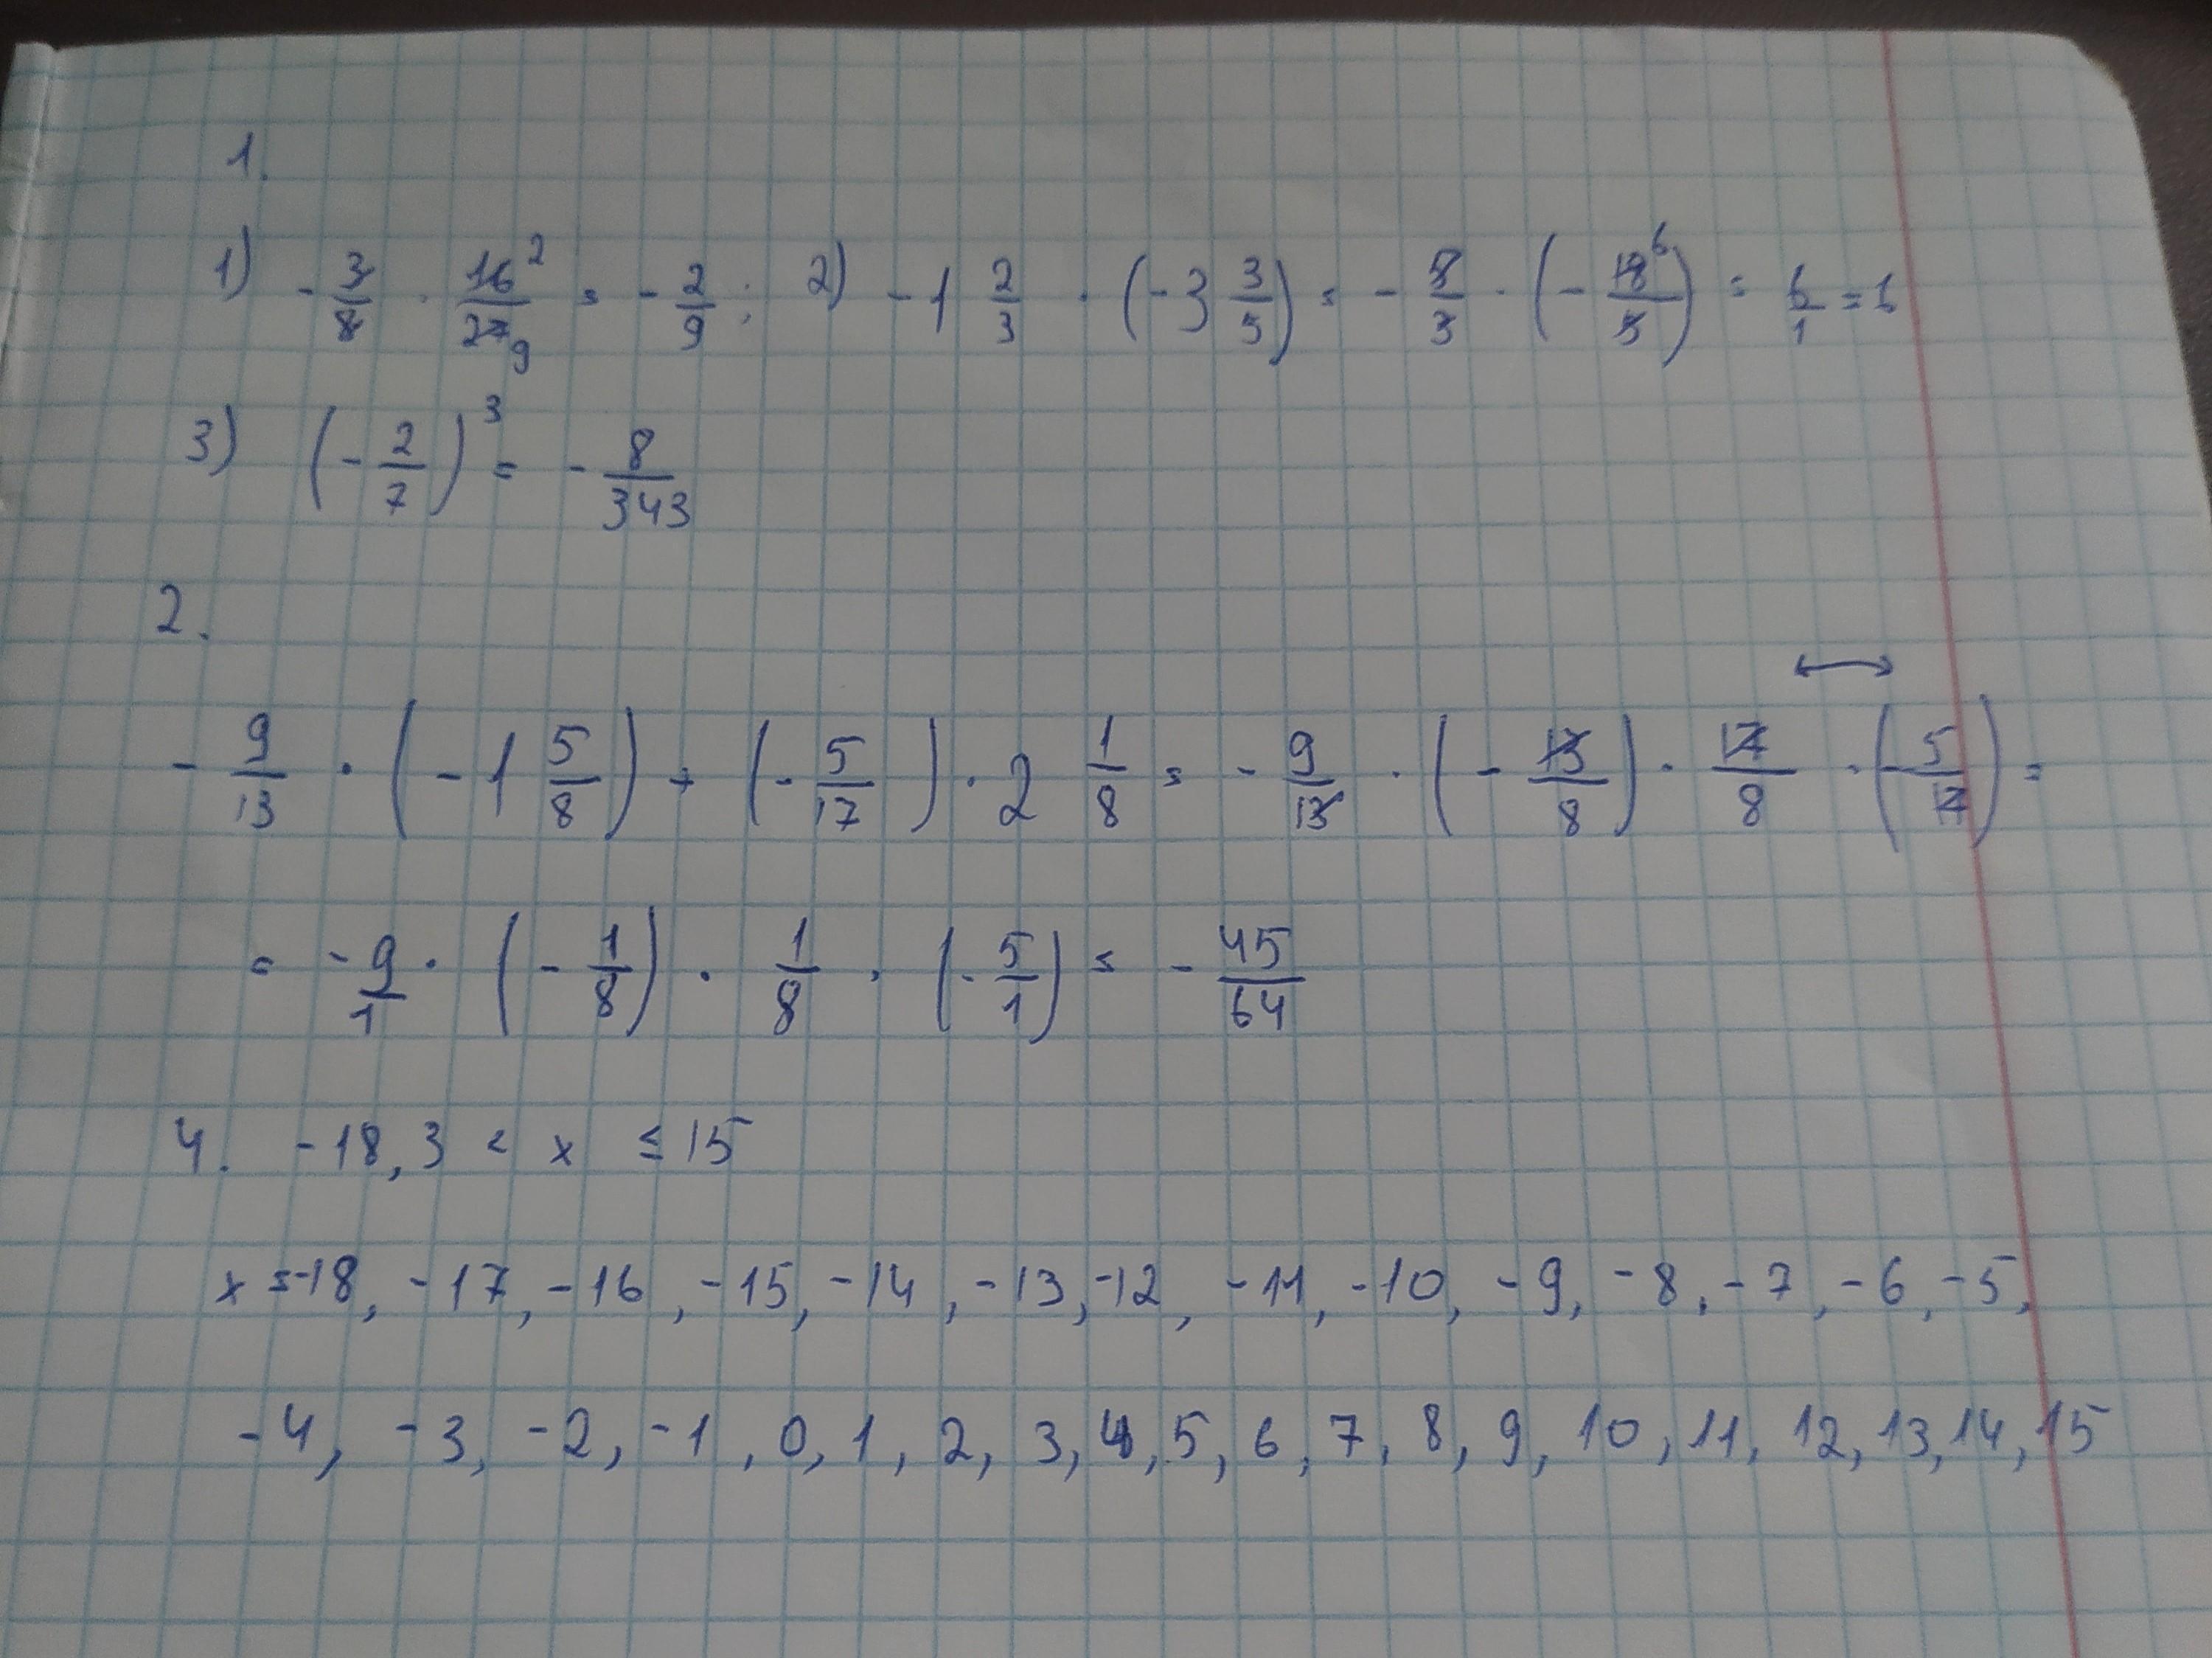 1.
1) - 3/8 · 16²/27₉ = - 2/9 ; 2) - 1 2/3 · (- 3 3/5) = - 5/3 · (- 18⁶/5) = 6/1 = 6
3) (- 2/7)³ = - 8/343
2.
- 9/13 · (- 1 5/8) + (- 5/17) · 2 1/8 = - 9/13 · (- 13/8) · 17/8 · (- 5/17) =
= -9/1 · (- 1/8) · 1/8 · (- 5/1) = - 45/64
4. -18,3 < x ≤ 15
x = -18, -17, -16, -15, -14, -13, -12, -11, -10, -9, -8, -7, -6, -5,
-4, -3, -2, -1, 0, 1, 2, 3, 4, 5, 6, 7, 8, 9, 10, 11, 12, 13, 14, 15